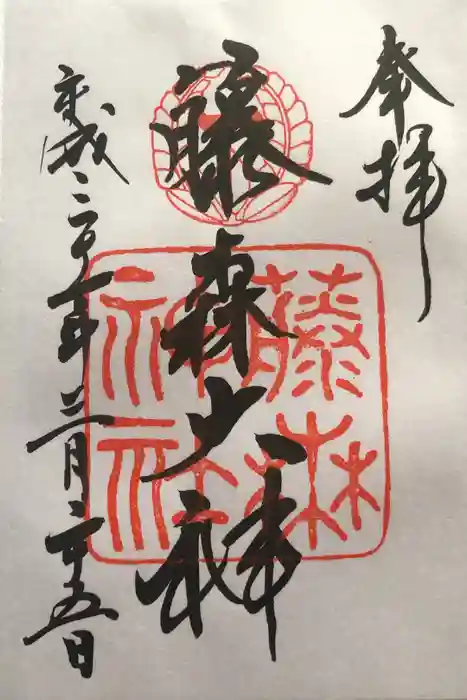 奉拝
藤森大神
平成二十年 月二十五日
藤森
神社